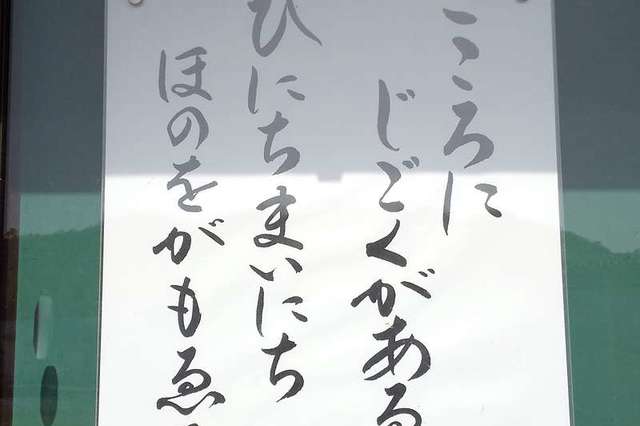 こころに
じごくがある
ひにちまいにち
ほのをがもゑる